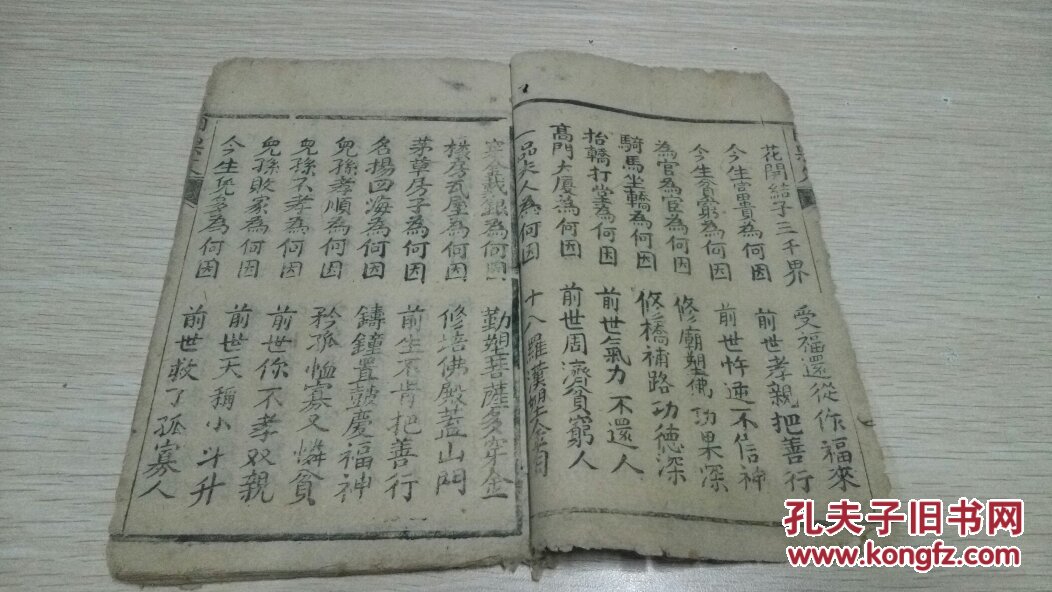 花開結子三千界 受福還從作福來
今生富貴為何因 前世孝親把善行
今生貧窮為何因 前世忤逆不信神
為官為宦為何因 修廟塑佛功果深
騎馬坐轎為何因 修橋補路功德深
抬轎打堂為何因 前世氣力不還人
高門大厦為何因 前世周濟貧窮人
一品夫人為何因 十八羅漢塑金身
穿金戴銀為何因 勤塑菩薩多穿金
樓房瓦屋為何因 修培佛殿蓋山門
茅草房子為何因 前生不肯把善行
名揚四海為何因 鑄鐘置鼓慶福神
兒孫孝順為何因 矜孤恤寡又憐貧
兒孫不孝為何因 前世你不孝双親
兒孫敗家為何因 前世大稱小斗升
今生兒多為何因 前世救了孤寡人
孔夫子旧书网
www.kongfz.com